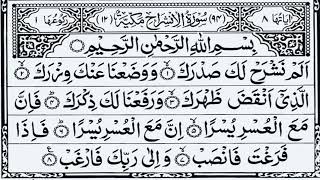 اٰيَاتُهَا ٨ (٩٤) سُوْرَةُ الْاِنْشِرَاحِ مَكِّيَّةٌ (١٢) رُكُوْعُهَا ١
بِسْمِ اللّٰهِ الرَّحْمٰنِ الرَّحِيْمِ
اَلَمْ نَشْرَحْ لَكَ صَدْرَكَ ۙ﴿١﴾ وَوَضَعْنَا عَنْكَ وِزْرَكَ ۙ﴿٢﴾
الَّذِيْٓ اَنْقَضَ ظَهْرَكَ ۙ﴿٣﴾ وَرَفَعْنَا لَكَ ذِكْرَكَ ؕ﴿٤﴾ فَاِنَّ
مَعَ الْعُسْرِ يُسْرًا ۙ﴿٥﴾ اِنَّ مَعَ الْعُسْرِ يُسْرًا ؕ﴿٦﴾ فَاِذَا
فَرَغْتَ فَانْصَبْ ۙ﴿٧﴾ وَاِلٰى رَبِّكَ فَارْغَبْ ﴿٨﴾